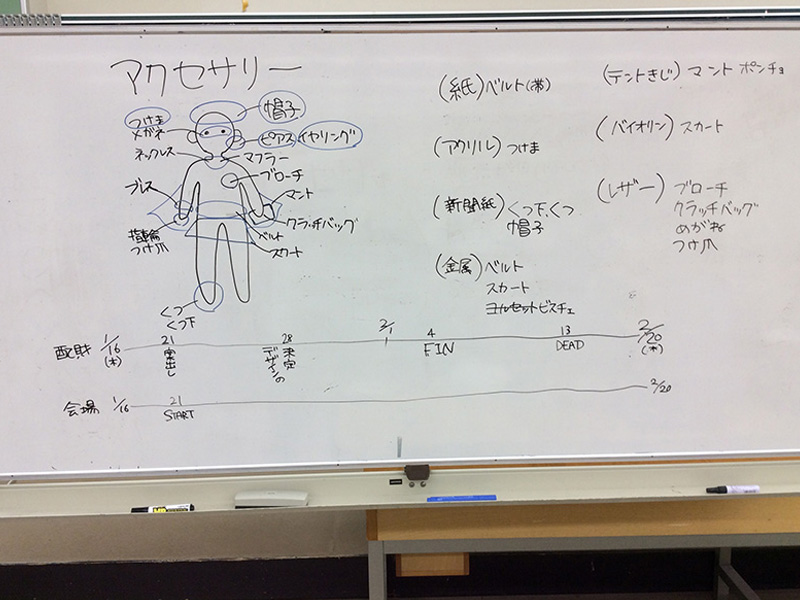 アクセサリー
帽子
つけま
メガネ
ピアス イヤリング
ネックレス
マフラー
ブローチ
ブレス
マント
クラッチバッグ
指輪
つけ爪
ベルト
スカート
くつ
くつ下
(紙) ベルト(帯)
(アクリル) つけま
(新聞紙) くつ下、くつ
帽子
(金属) ベルト
スカート
コルセットビスチェ
(テントきじ) マント ポンチョ
(バイオリン) スカート
(レザー) ブローチ
クラッチバッグ
めがね
つけ爪
配財 1/16 (木) 21 案出し 28 デザインの決定 2/1 4 FIN 13 DEAD 2/20 (木)
会場 1/16 21 START 2/20